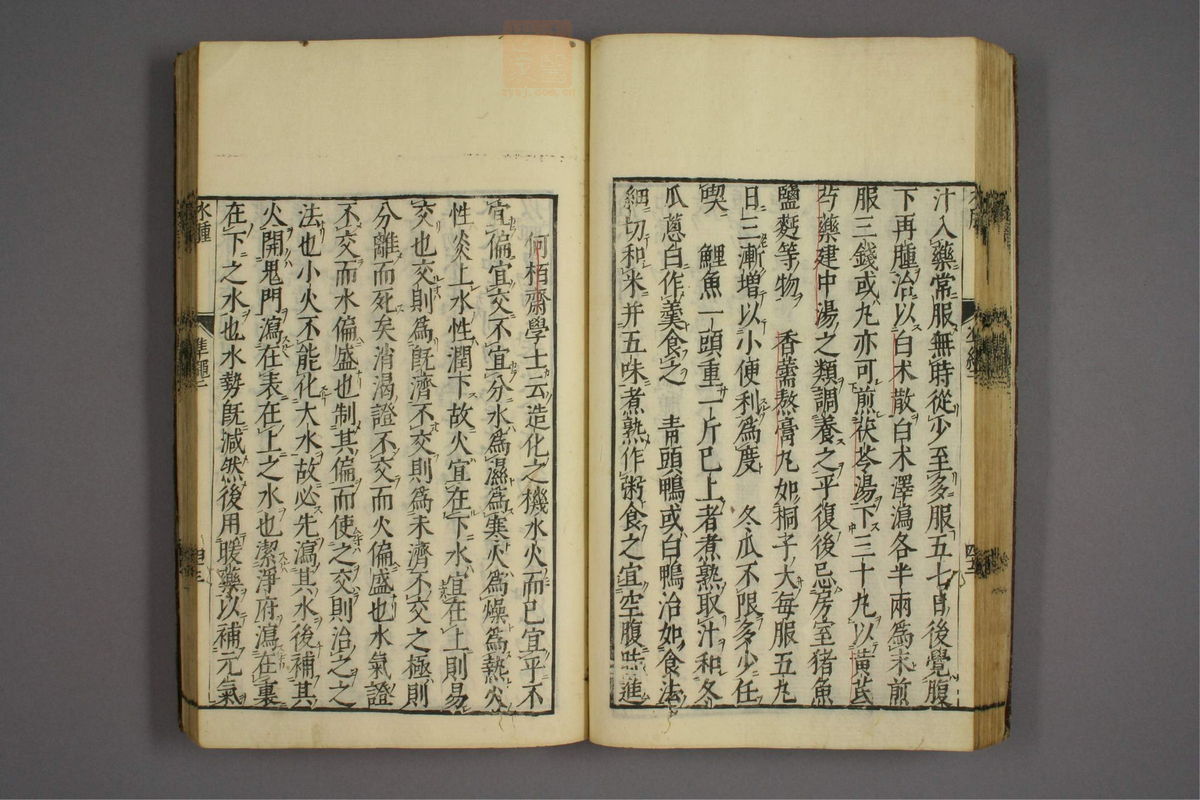 汁入藥常服無時從少至多服五七日後覺腹
下再腫治以白术散白术澤瀉各半兩爲末煎
服三錢或丸亦可煎茯苓湯下三十丸以黄芪
芍藥建中湯之類調養之平復後忌房室猪魚
鹽麪等物　香薷熬膏丸如桐子大每服五丸
日三漸增以小便利爲度　冬瓜不限多少任
喫　鯉魚一頭重一斤已上者煮熟取汁和冬
瓜蔥白作羹食之　青頭鴨或白鴨治如食法
細切和米并五味煮熟作粥食之宜空腹時進
何栢齋學士云造化之機水火而已宜平不
宜偏宜交不宜分水爲濕爲寒火爲燥爲熱火
性炎上水性潤下故火宜在下水宜在上則易
交也交則爲旣濟不交則爲未濟不交之極則
分離而死矣消渴證不交而火偏盛也水氣證
不交而水偏盛也制其偏而使之交則治之之
法也小火不能化大水故必先瀉其水後補其
火開鬼門瀉在表在上之水也潔淨府瀉在裏
在下之水也水勢旣減然後用暖藥以補元氣
水腫
準繩二